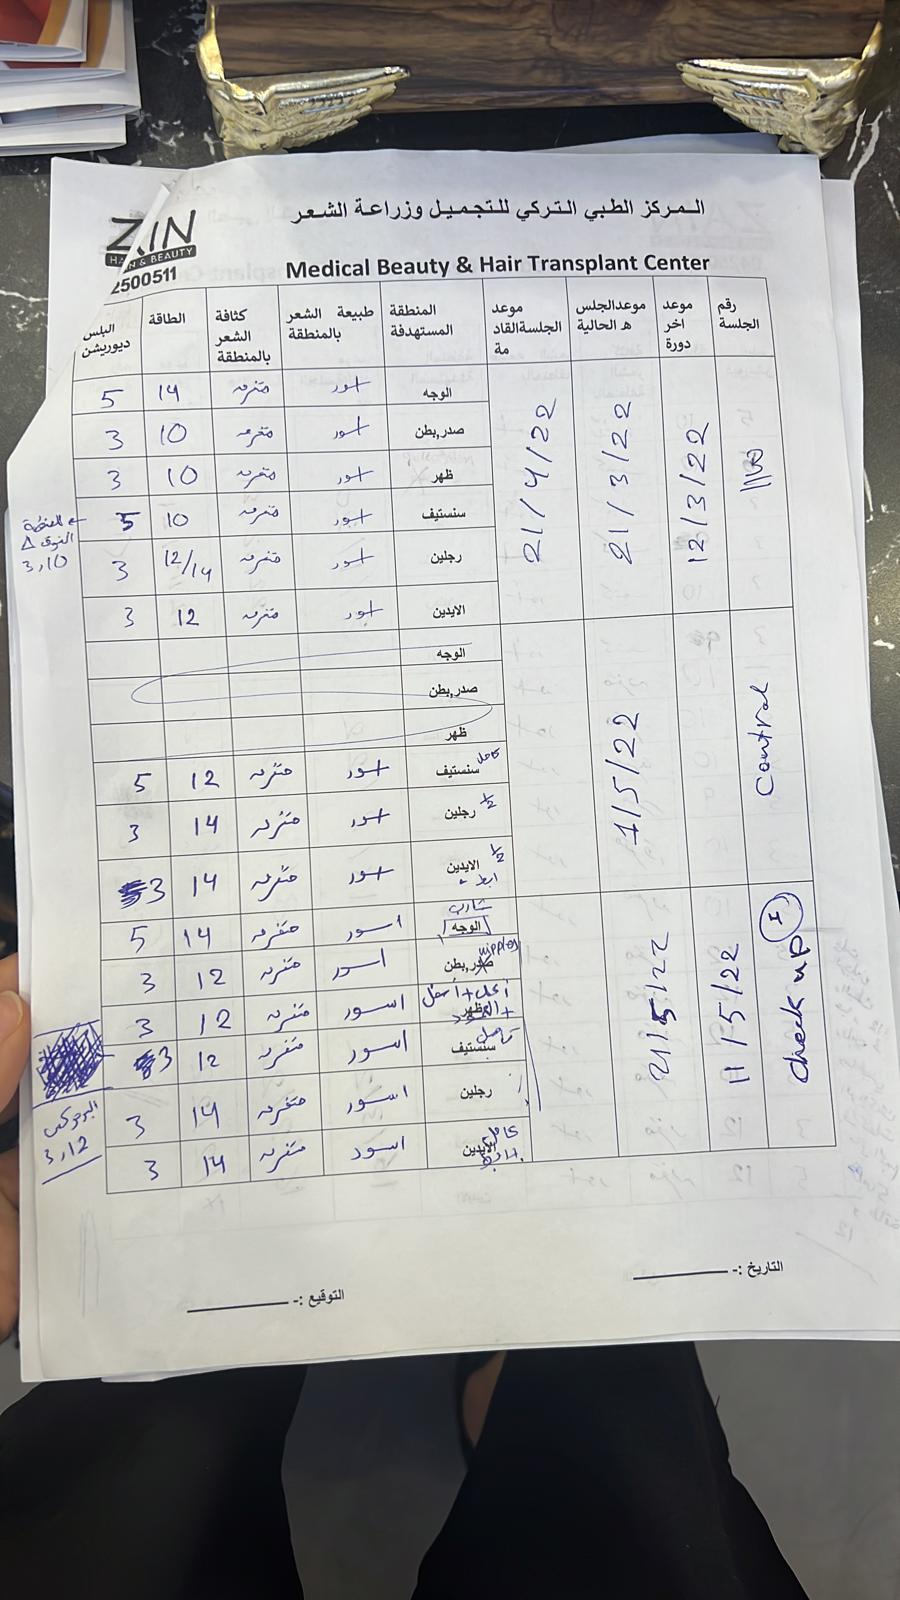 المركز الطبي التركي للتجميل وزراعة الشعر
ZAIN
HAIR & BEAUTY
2500511
Medical Beauty & Hair Transplant Center
رقم الجلسة | موعد اخر دورة | موعدالجلسه الحالية | موعد الجلسةالقادمة | المنطقة المستهدفة | طبيعة الشعر بالمنطقة | كثافة الشعر بالمنطقة | الطاقة | البلس ديوريشن
12/3/22 | 21/3/22 | 21/4/22
الوجه | اسود | متفرقه | 14 | 5
صدر,بطن | اسود | متفرقه | 10 | 3
ظهر | اسود | متفرقه | 10 | 3
سنستيف | اسود | متفرقه | 10 | 5
رجلين | اسود | متفرقه | 12/14 | 3
3,10
الايدين | اسود | متفرقه | 12 | 3
Control | 1/5/22
الوجه
صدر,بطن
ظهر
سنستيف كامل | اسود | متفرقه | 12 | 5
رجلين 1/2 | اسود | متفرقه | 14 | 3
الايدين 1/2 | اسود | متفرقه | 14 | 3
ابط
check up 1 | 11/5/22 | 21/5/22
شارب
الوجه | اسود | متفرقه | 14 | 5
صدر,بطن nipples | اسود | متفرقه | 12 | 3
ظهر أعلى + أسفل | اسود | متفرقه | 12 | 3
سنستيف كامل | اسود | متفرقه | 12 | 3
رجلين | اسود | متفرقه | 14 | 3
3,12
الايدين كامل | اسود | متفرقه | 14 | 3
التاريخ :-
التوقيع :-